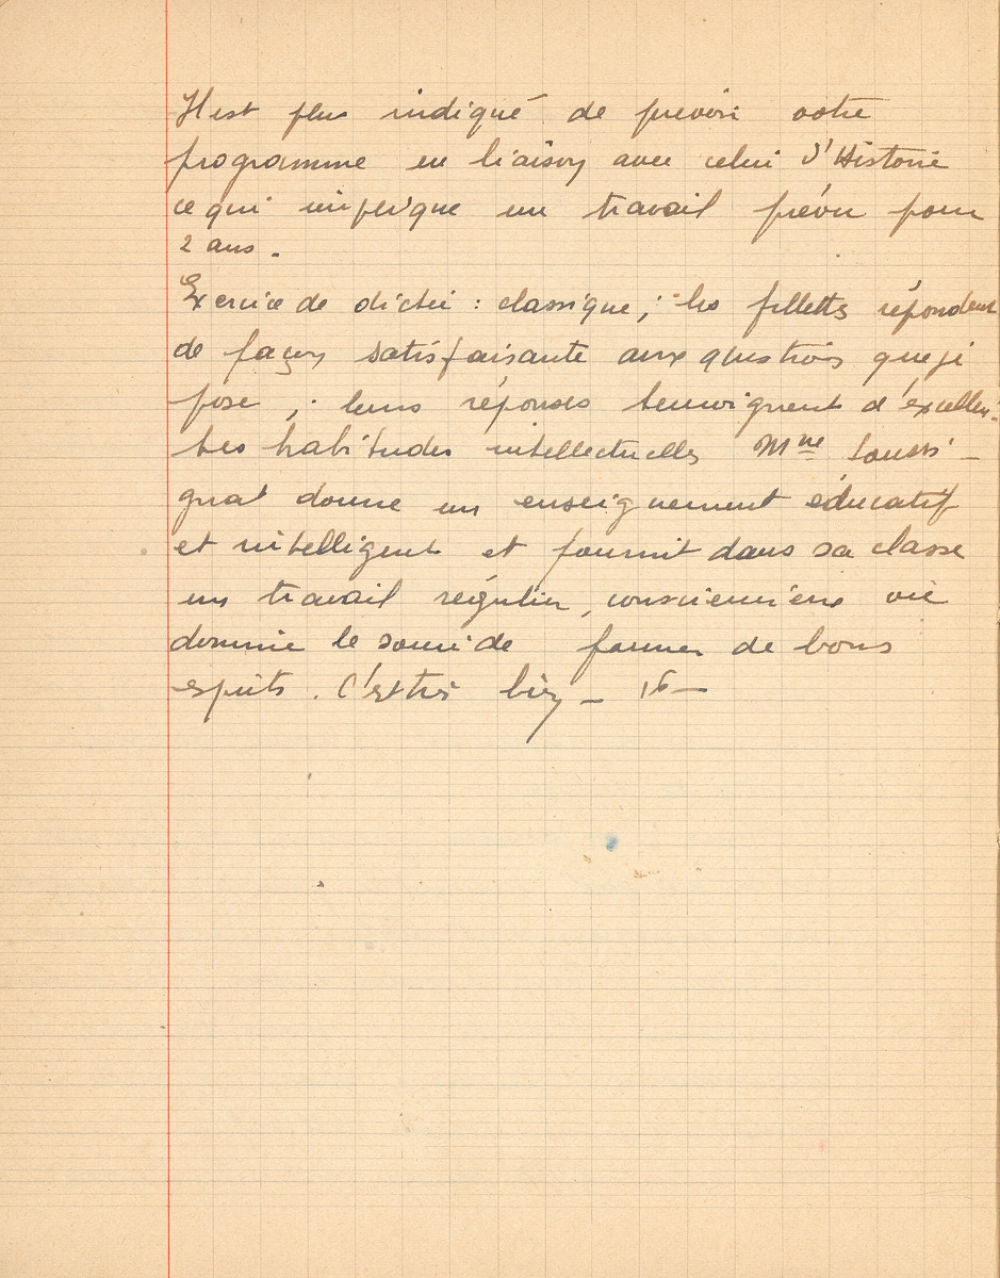 Il est plus indiqué de prévoir votre
programme en liaison avec celui d'Histoire
ce qui implique un travail prévu pour
2 ans.
Exercice de dictée : classique ; les fillettes répondent
de façon satisfaisante aux questions que je
pose ; leurs réponses témoignent d'excellen-
tes habitudes intellectuelles Mme
gnat donne un enseignement éducatif
et intelligent et fournit dans sa classe
un travail régulier, consciencieux où
domine le souci de former de bons
esprits. C'est très bien – 16 –